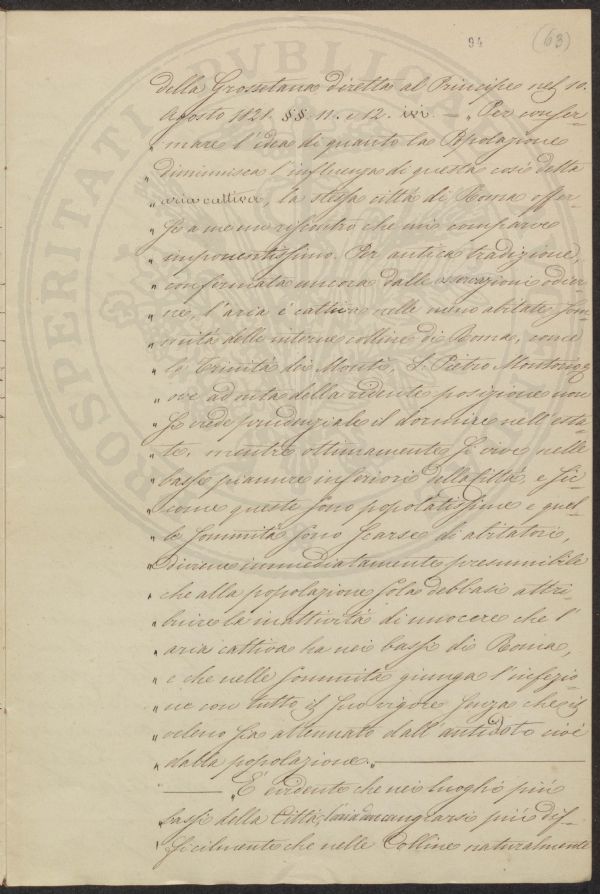 94 (63)
della Grossetana diretta al Principe nel 10.
Agosto 1821. §§. 11. e 12. ivi. — „ Per confer-
„ mare l'idea di quanto la Popolazione
„ diminuisca l'influenza di questa così detta
„ aria cattiva, la stessa città di Roma offer-
„ se a me un riscontro che mi comparve
„ imponentissimo. Per antica tradizione,
„ confermata ancora dalle osservazioni odier-
„ ne, l'aria è cattiva nelle meno abitate som-
„ mità delle interne colline di Roma, come
„ la Trinità dei Monti, S. Pietro Montorio,
„ ove ad onta della ridente posizione non
„ si crede prudenziale il dormire nell'esta-
„ te, mentre ottimamente si vive nelle
„ basse pianure inferiori della Città, e sic-
„ come queste sono popolatissime e quel-
„ le sommità sono scarse di abitatori,
„ diviene immediatamente presumibile
„ che alla popolazione sola debbasi attri-
„ buire la inattività di nuocere che l'
„ aria cattiva ha nei bassi di Roma,
„ e che nelle sommità giunga l'infezio-
„ ne con tutto il suo vigore senza che il
„ veleno sia attenuato dall'antidoto cioè
„ dalla popolazione. „ ———
——— „ È evidente che nei luoghi più
„ bassi della Città, l'aria deve cangiarsi più dif-
„ ficilmente che nelle Colline naturalmente
PROSPERITATI PUBLICAE